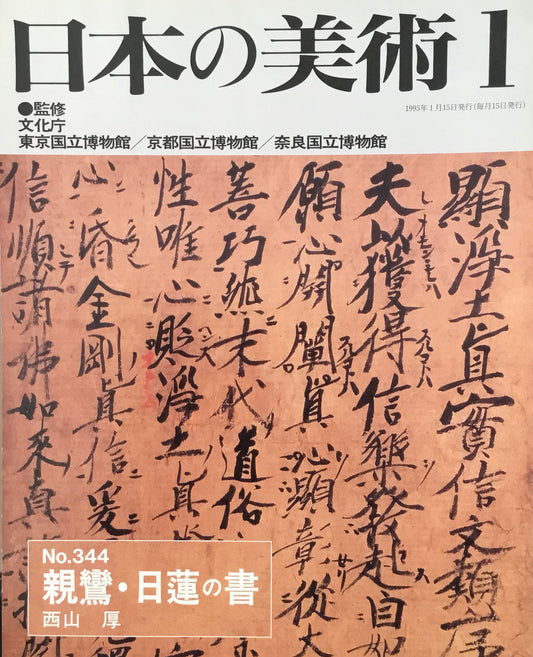 日本の美術1
1995年1月15日発行(毎月15日発行)
●監修
文化庁
東京国立博物館/京都国立博物館/奈良国立博物館
顯淨土眞實信文類序
夫以獲得信樂發起自如
願心開闡眞心顯彰從大
善巧然末代道俗
性唯心貶淨土眞
心昏金剛眞信爰
信順諸佛如來眞
No.344
親鸞・日蓮の書
西山 厚